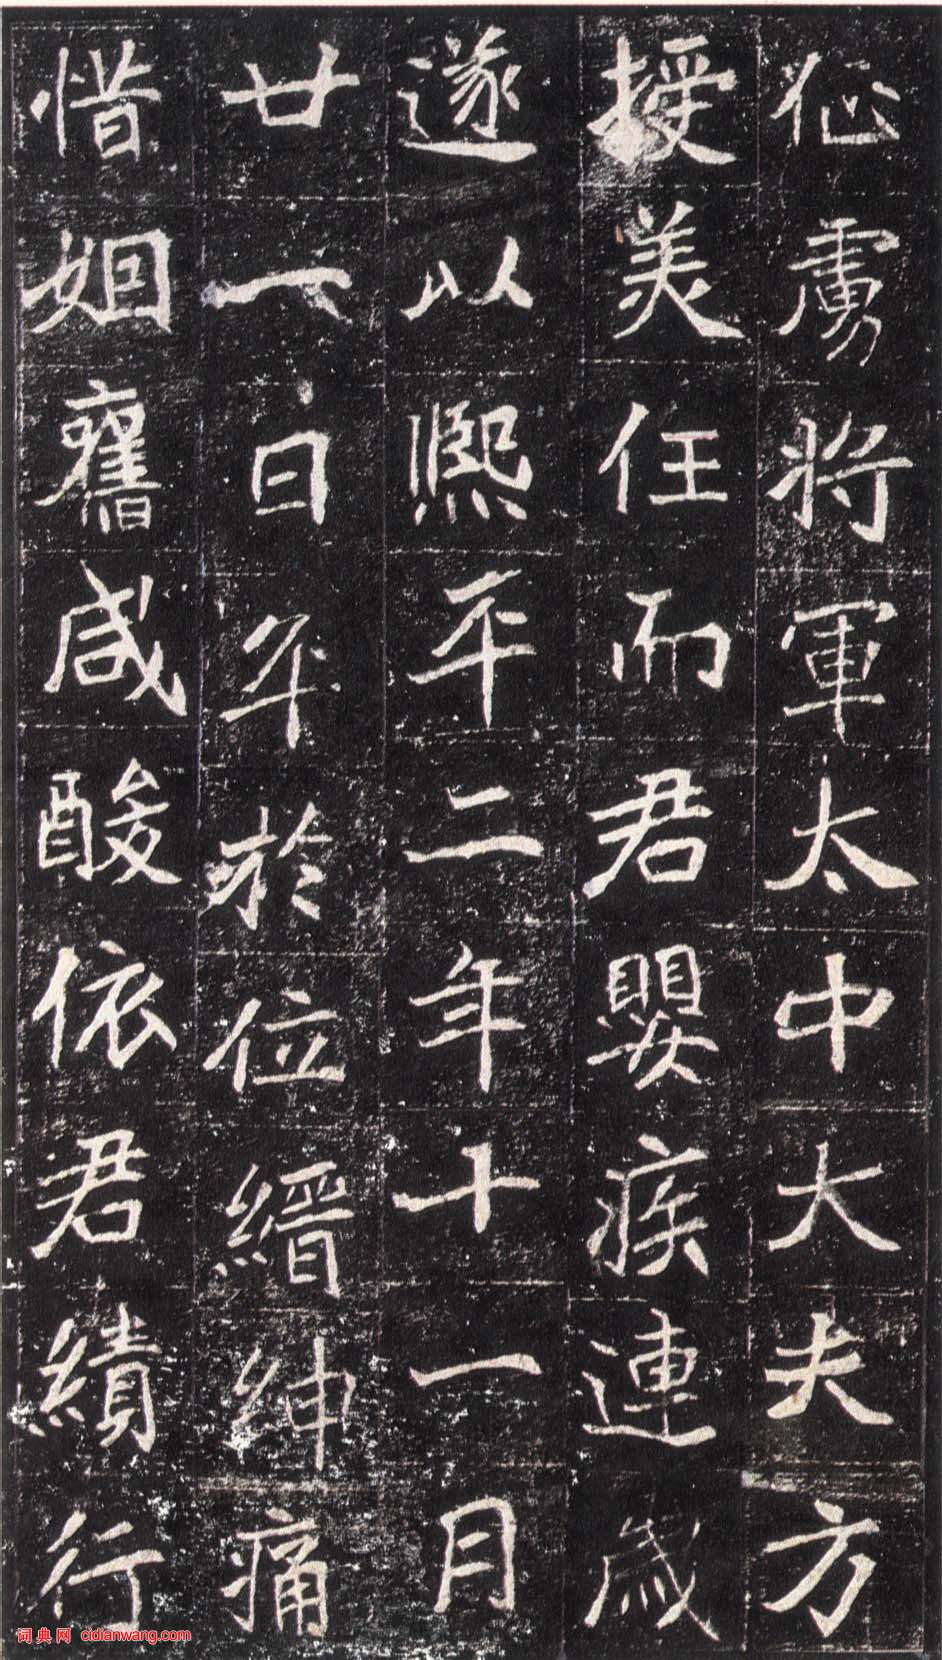 征虜將軍太中大夫方
授美任而君嬰疾連歲
遂以熙平二年十一月
廿一日卒於位縉紳痛
惜姻舊咸酸依君績行
词典网 cidianwang.com